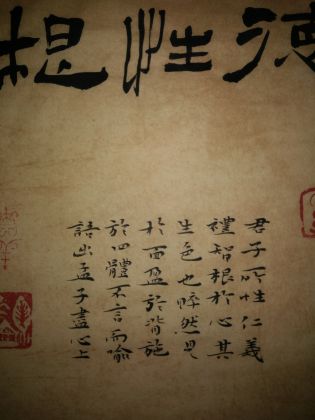 德性根
君子所性仁義
禮智根於心其
生色也睟然見
於面盈於背施
於四體不言而喻
語出孟子盡心上